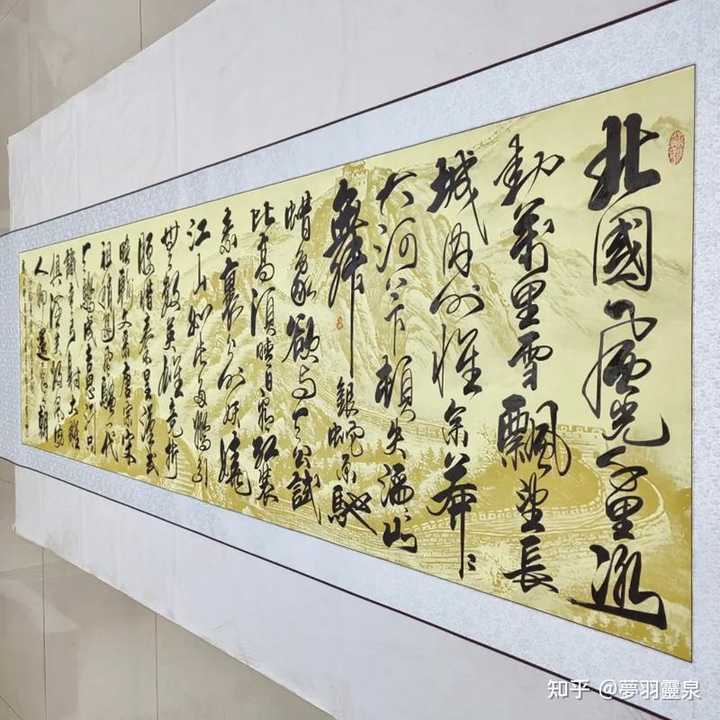 北國風光千里冰
封萬里雪飄望長
城内外惟余莽〻
大河上下頓失滔〻山
舞銀蛇原馳
蜡象欲与天公試
比高須晴日看紅裝
素裹分外妖嬈
江山如此多嬌引
無數英雄竞折
腰惜秦皇漢武
略輸文采唐宗宋
祖稍遜風騷一代
天驕成吉思汗只
識弯弓射大雕
俱往矣數風流
人物還看今朝
知乎 @夢羽靈泉